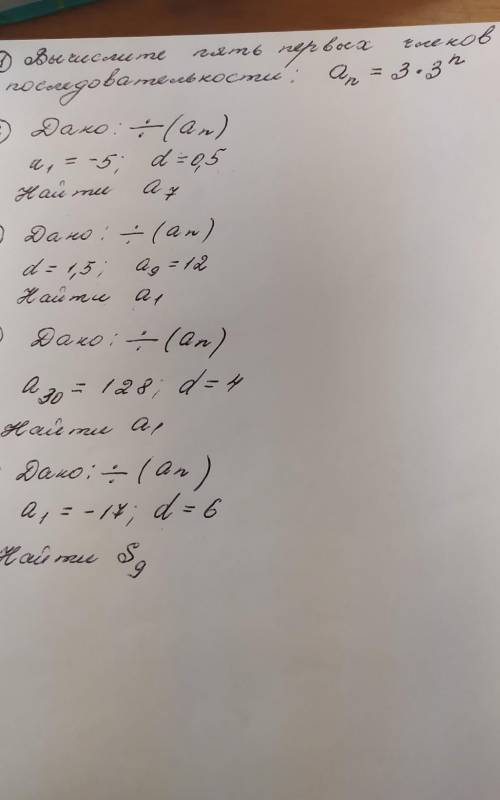 1) Вычислите пять первых членов
последовательности: aₙ = 3·3ⁿ
Дано: ÷(aₙ)
a₁ = -5; d = 0,5
Найти a₇
Дано: ÷(aₙ)
d = 1,5; a₉ = 12
Найти a₁
Дано: ÷(aₙ)
a₃₀ = 128; d = 4
Найти a₁
Дано: ÷(aₙ)
a₁ = -17; d = 6
Найти S₉